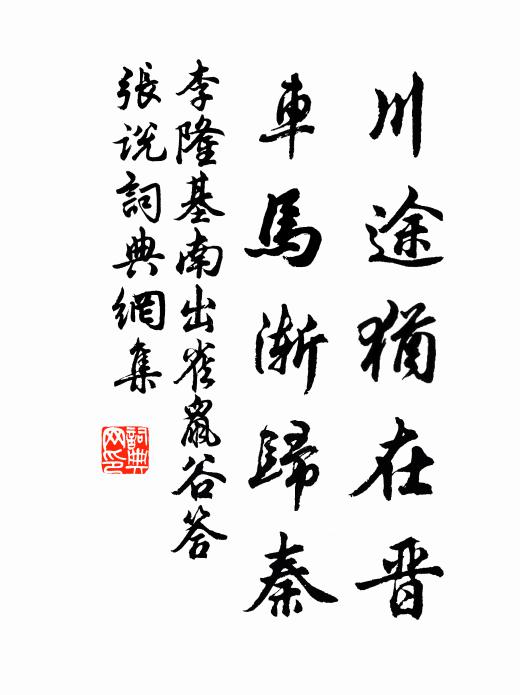 川途猶在晋
車馬漸歸秦
李隆基南出雀鼠谷答
張说詞典網集
詞典
网印